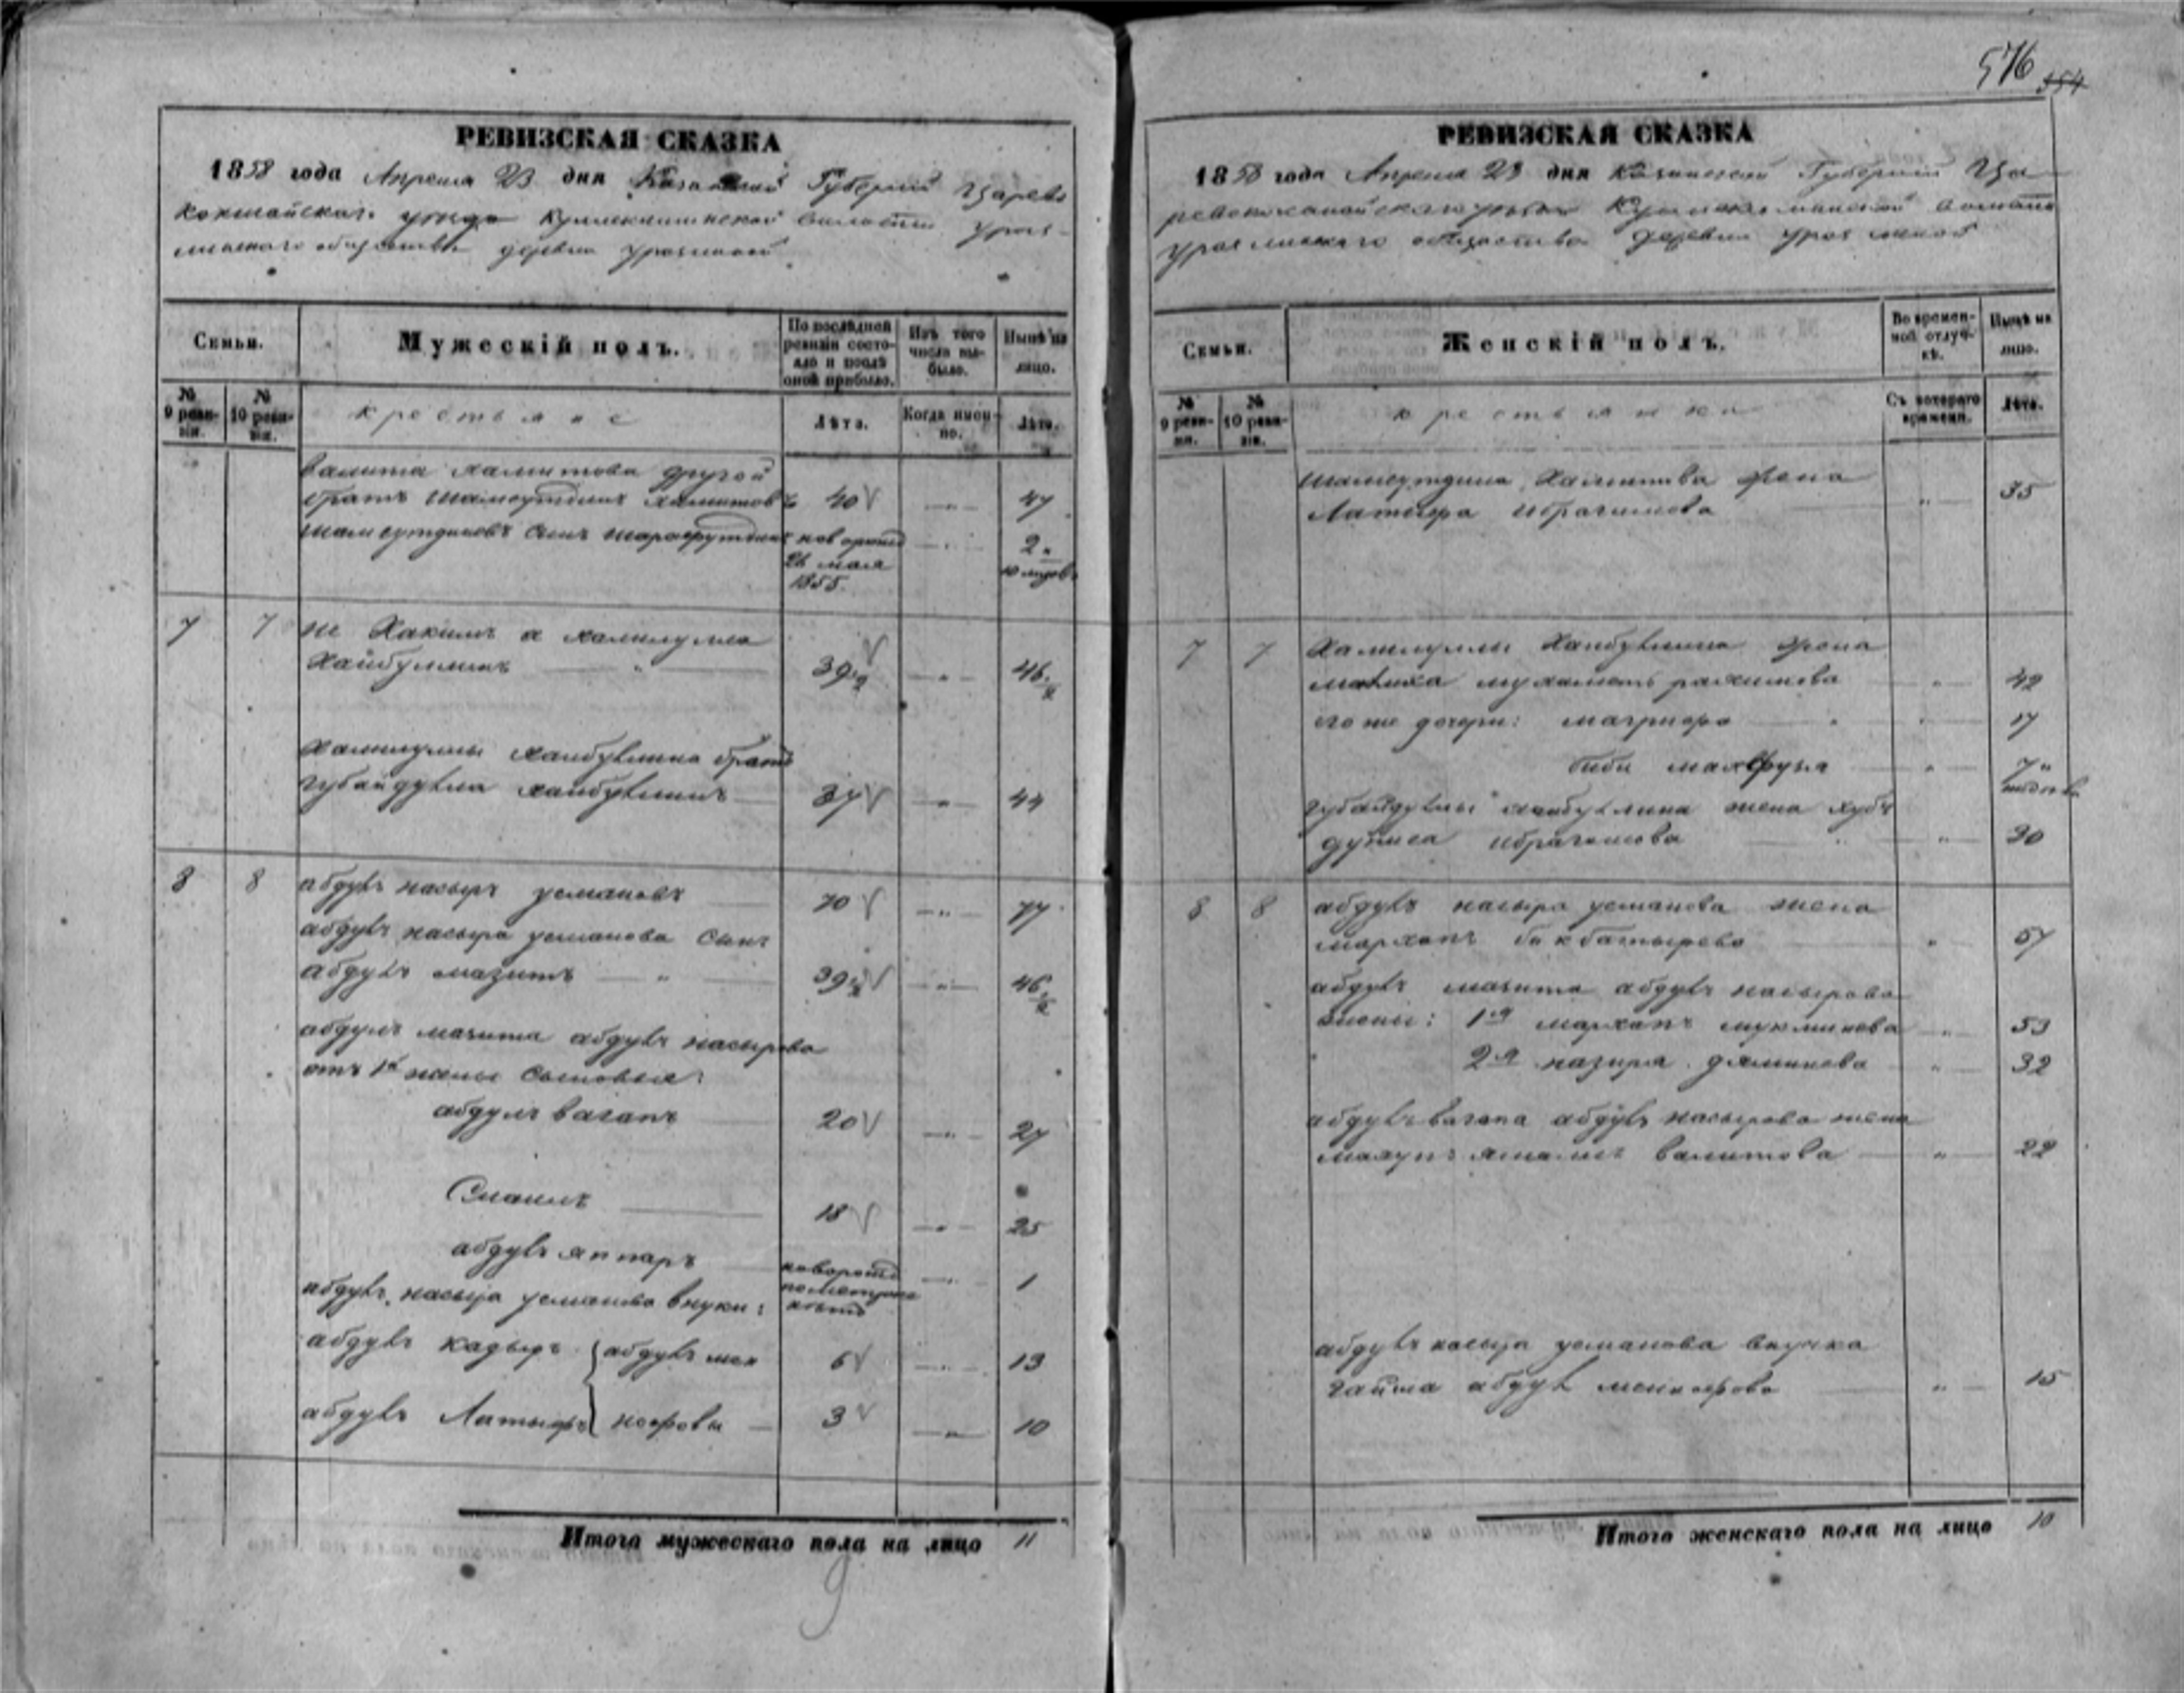 576 354
РЕВИЗСКАЯ СКАЗКА
1858 года Апреля 23 дня Казанской Губерніи Царево
кокшайскаго уезда волости Ураз-
линскаго общества деревни Уразлиной
Семьи.
Мужескій полъ.
По послѣдней ревизіи состояло и послѣ оной прибыло.
Изъ того числа выбыло.
Нынѣ на лицо.
№ 9 ревизіи.
№ 10 ревизіи.
крестьяне
Лѣта.
Когда именно.
Лѣта.
Валита Хамитова другой
братъ Шамсутдинъ Хамитовъ 40 — " — 47
Шамсутдиновъ сынъ Шарафутдинъ новорожд — " — 2
26 мая
1855.
7 7 не Хакимъ а Халиулла
Хайбуллинъ — " — 39 1/2 — " — 46 1/2
Хайбуллина братъ
Губайдулла Хайбуллинъ 37 — " — 44
8 8 абдулъ насыръ усмановъ 70 — " — 77
абдулъ насыра усманова сынъ
абдулъ мазитъ — " — 39 1/2 — " — 46 1/2
абдулъ мазита абдулъ насырова
отъ 1й жены сыновья:
абдулъ вагапъ 20 — " — 27
Смаилъ 18 — " — 25
абдулъ яппаръ новорожд — " — 1
абдулъ насыра усманова внуки:
абдулъ кадыръ абдулъ мен 6 — " — 13
абдулъ Латыфъ нофровы 3 — " — 10
Итого мужескаго пола на лицо 11
9
РЕВИЗСКАЯ СКАЗКА
1858 года Апреля 23 дня Казанской Губерніи Ца
ревококшайскаго уезда волости
Уразлинскаго общества деревни Уразлиной
Семьи.
Женскій полъ.
Во временной отлучкѣ.
Нынѣ на лицо.
№ 9 ревизіи.
№ 10 ревизіи.
крестьянки
Съ котораго времени.
Лѣта.
Шамсутдина Хамитова жена
Латыфа Ибрагимова — " — 35
7 7 Хайбуллина жена
малиха мухаметъ рахимова — " — 42
его же дочери: — " — 17
биби махфуза — " — 7
Губайдуллы Хайбуллина жена
Ибрагимова — " — 30
8 8 абдулъ насыра усманова жена
марханъ бакбатырева — " — 57
абдулъ мазита абдулъ насырова
жены: 1я марханъ мукминова — " — 53
2я назира даминова — " — 32
абдулъ вагапа абдулъ насырова жена
Валитова — " — 22
абдулъ насыра усманова внучка
гайша абдул меннофрова — " — 15
Итого женскаго пола на лицо 10